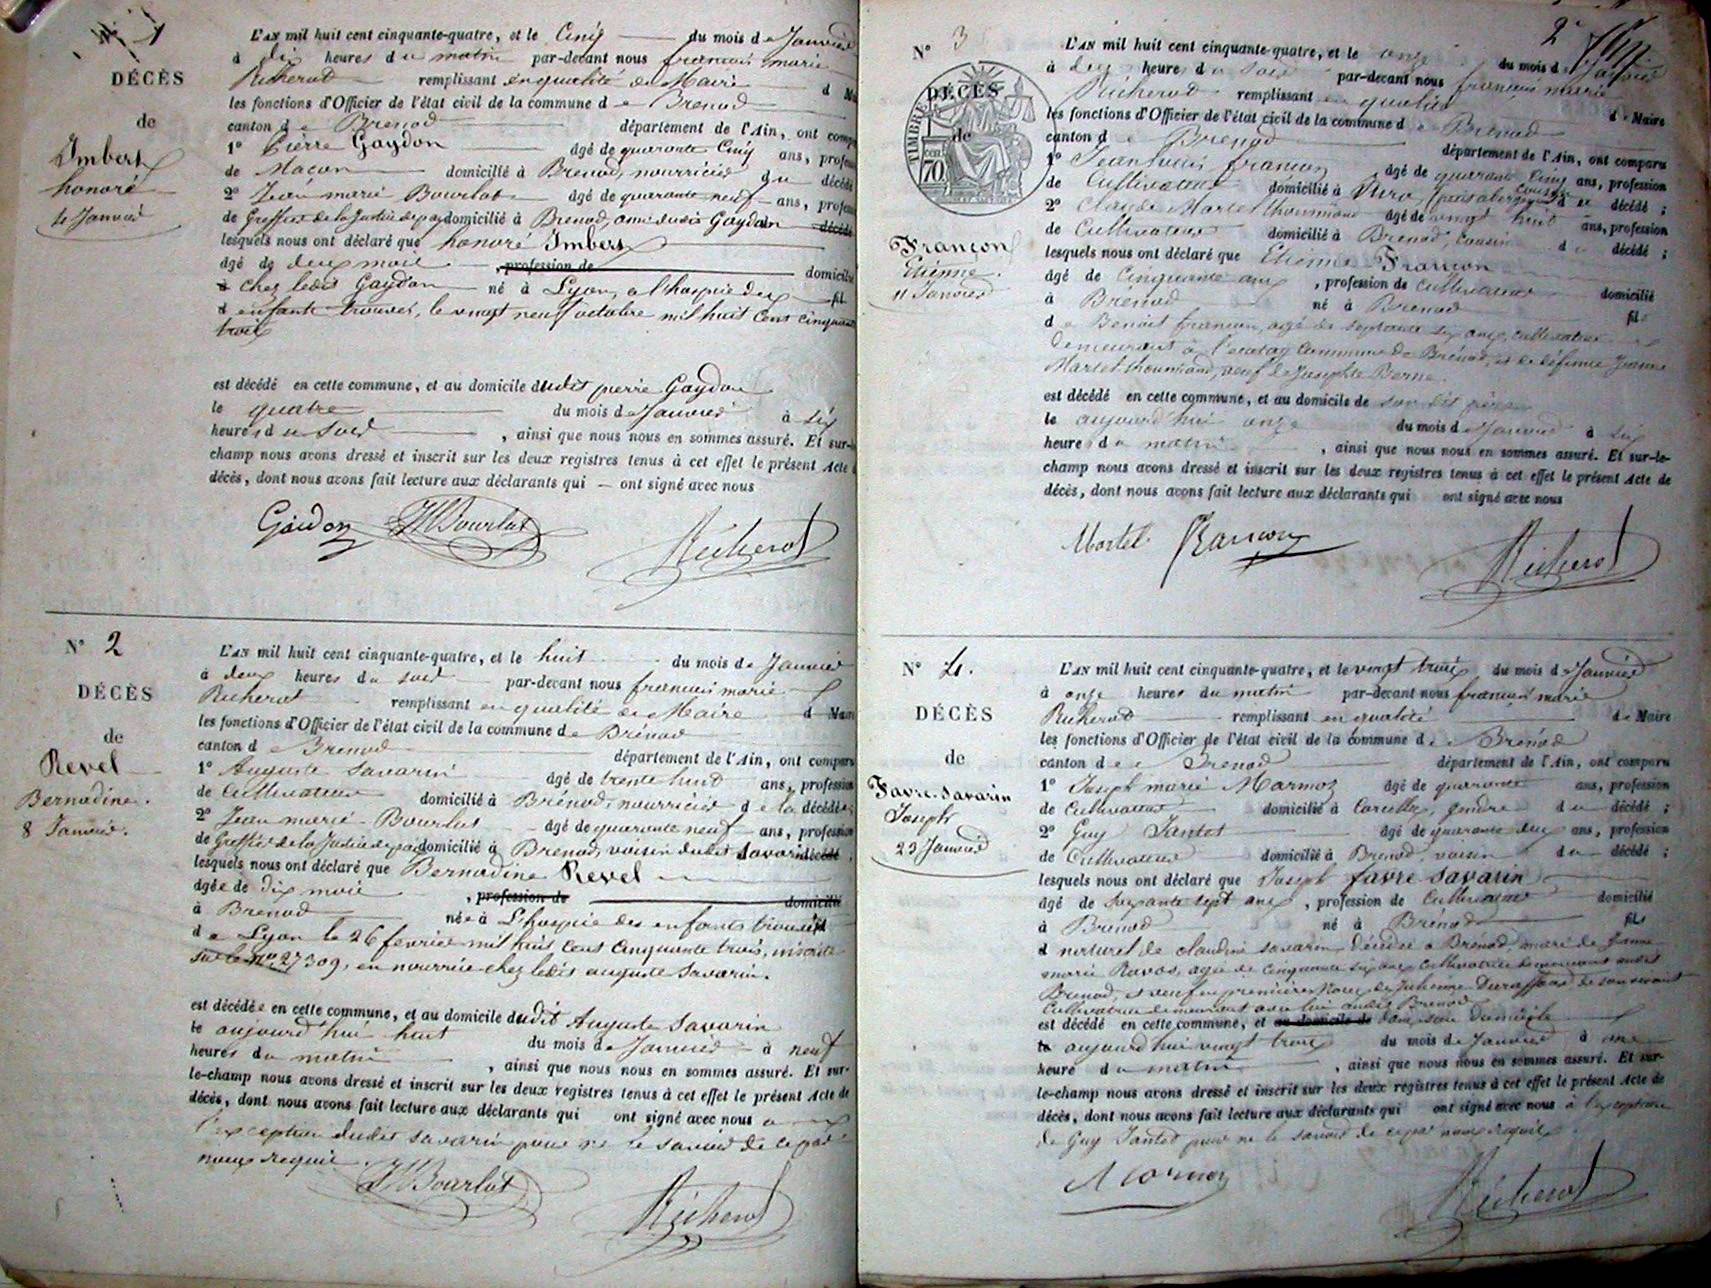 DÉCÈS
de
Imbert
honoré
4 Janvier
L'AN mil huit cent cinquante-quatre, et le Cinq du mois de Janvier
à dix heures du matin par-devant nous françois marie
Richerot remplissant en qualité de Maire d
les fonctions d'Officier de l'état civil de la commune de Brenod
canton de Brenod département de l'Ain, ont
1° Pierre Gaydon âgé de quarante Cinq ans,
de Maçon domicilié à Brenod, nourricier du décédé
2° Jean marie Bourlot âgé de quarante neuf ans,
de Greffier de la Justice de paix domicilié à Brenod, ami dudit Gaydon décédé
lesquels nous ont déclaré que honoré Imbert
âgé de deux mois , profession de domicilié
à chez ledit Gaydon né à Lyon, a l'hospice des fil
d enfants trouvés, le vingt neuf octobre mil huit Cent cinquante
trois
est décédé en cette commune, et au domicile dudit pierre Gaydon
le quatre du mois de Janvier à six
heures du soir , ainsi que nous nous en sommes assuré. Et sur-
champ nous avons dressé et inscrit sur les deux registres tenus à cet effet le présent Acte
décès, dont nous avons fait lecture aux déclarants qui ont signé avec nous
Gaidon JMBourlot Richerot
N° 2
DÉCÈS
de
Revel
Bernadine.
8 Janvier.
L'AN mil huit cent cinquante-quatre, et le huit du mois de Janvier
à deux heures du soir par-devant nous françois marie
Richerot remplissant en qualité de Maire d Maire
les fonctions d'Officier de l'état civil de la commune de Brénod
canton de Brenod département de l'Ain, ont comparu
1° Auguste Savarin âgé de trente huit ans, profession
de Cultivateur domicilié à Brénod, nourricier de la décédée;
2° Jean marie Bourlot âgé de quarante neuf ans, profession
de Greffier de la Justice de paix domicilié à Brenod, voisin dudit Savarin décédé
lesquels nous ont déclaré que Bernadine Revel
âgée de dix mois , profession de domicilié
à Brenod née à L'hospice des enfants trouvés fil
de Lyon le 26 fevrier mil huit Cent Cinquante trois, inscrite
sur le n° 27309, en nourrice chez ledit auguste Savarin.
est décédée en cette commune, et au domicile dudit Auguste Savarin
le aujourd'hui huit du mois de Janvier à neuf
heures du matin , ainsi que nous nous en sommes assuré. Et sur-
le-champ nous avons dressé et inscrit sur les deux registres tenus à cet effet le présent Acte de
décès, dont nous avons fait lecture aux déclarants qui ont signé avec nous a
l'exception dudit Savarin pour ne le savoir de ce par
nous requis.
JMBourlot Richerot
2e
N° 3
TIMBRE
70
DÉCÈS
de
Françon
Etienne.
11 Janvier
L'AN mil huit cent cinquante-quatre, et le onze du mois de Janvier
à heures du soir par-devant nous françois marie
Richerot remplissant en qualité de Maire
les fonctions d'Officier de l'état civil de la commune de Brenod
canton de Brenod département de l'Ain, ont comparu
1° Jean louis françon âgé de quarante Cinq ans, profession
de Cultivateur domicilié à cousin du décédé;
2° Claude Martel thoumond âgé de vingt huit ans, profession
de Cultivateur domicilié à Brenod, cousin du décédé;
lesquels nous ont déclaré que Etienne Françon
âgé de Cinquante ans , profession de Cultivateur domicilié
à Brenod né à Brenod fils
de Benoit françon, agé de septante six ans, cultivateur
demeurant à commune de Brénod, et de défunte Jeanne
Martel thoumond, veuf de Josephte Berne.
est décédé en cette commune, et au domicile de son dit père
le aujourd'hui onze du mois de Janvier à six
heures du matin , ainsi que nous nous en sommes assuré. Et sur-le-
champ nous avons dressé et inscrit sur les deux registres tenus à cet effet le présent Acte de
décès, dont nous avons fait lecture aux déclarants qui ont signé avec nous
Martel françon Richerot
N° 4.
DÉCÈS
de
Favre-Savarin
Joseph
23 Janvier
L'AN mil huit cent cinquante-quatre, et le vingt trois du mois de Janvier
à onze heures du matin par-devant nous françois marie
Richerot remplissant en qualité de Maire
les fonctions d'Officier de l'état civil de la commune de Brénod
canton de Brenod département de l'Ain, ont comparu
1° Joseph marie Marmoz âgé de quarante ans, profession
de Cultivateur domicilié à Corcelles, gendre du décédé;
2° Guy Jantet âgé de quarante deux ans, profession
de Cultivateur domicilié à Brenod, voisin du décédé;
lesquels nous ont déclaré que Joseph favre Savarin
âgé de soixante sept ans , profession de Cultivateur domicilié
à Brenod né à Brénod fils
d naturel de claudine savarin décédée à Brénod, marié de Jeanne
marie Ravos, agée de cinquante six ans Cultivatrice demeurant audit
Brenod, et veuf en premières noces de Julienne Duraffour, de son vivant
Cultivatrice demeurant avec lui audit Brenod
est décédé en cette commune, et au domicile de dans son Domicile
le aujourd'hui vingt trois du mois de Janvier à une
heure du matin , ainsi que nous nous en sommes assuré. Et sur-
le-champ nous avons dressé et inscrit sur les deux registres tenus à cet effet le présent Acte de
décès, dont nous avons fait lecture aux déclarants qui ont signé avec nous à l'exception
de Guy Jantet pour ne le savoir de ce par nous requis.
Marmoz Richerot